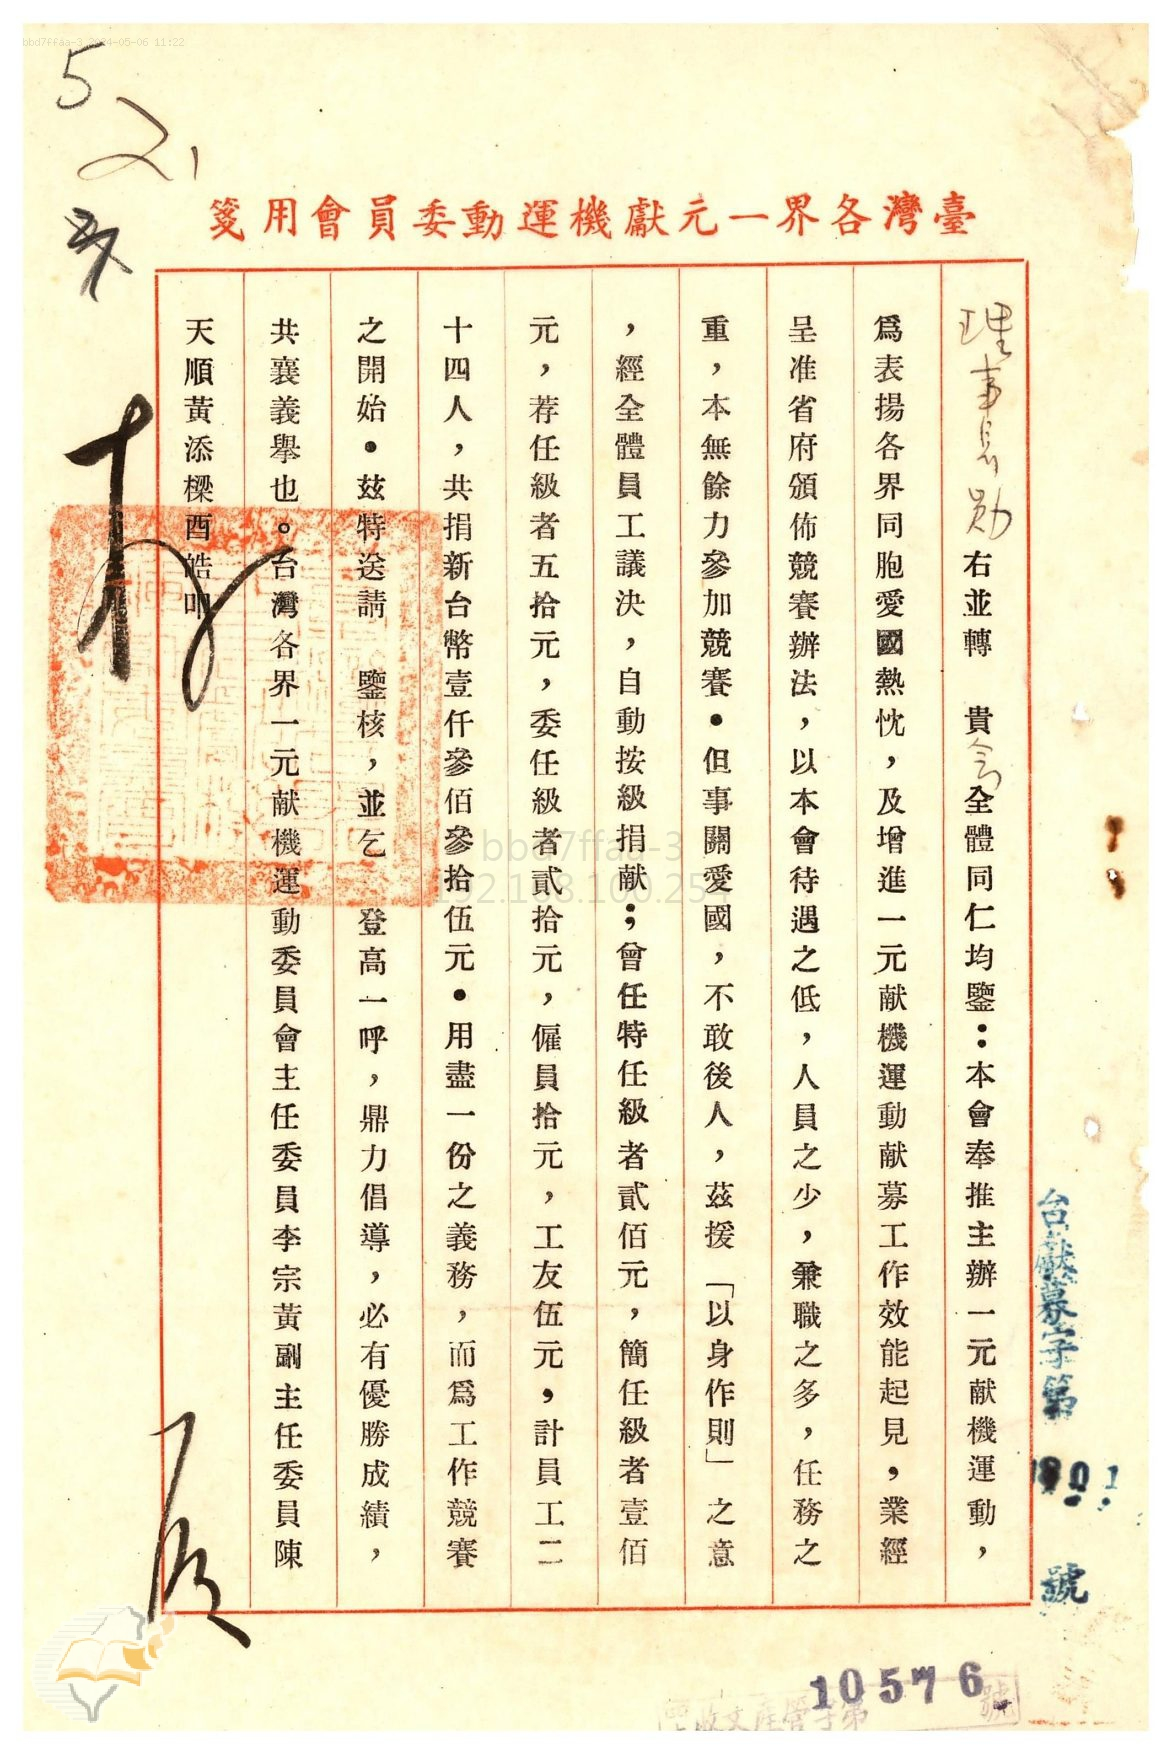 bbd7ffaa-3 2024-05-06 11:22
5
21
臺灣各界一元獻機運動委員會用箋
理事長勛右並轉　貴会全體同仁均鑒：本會奉推主辦一元献機運動，
爲表揚各界同胞愛國熱忱，及增進一元献機運動献募工作效能起見，業經
呈准省府頒佈競賽辦法，以本會待遇之低，人員之少，兼職之多，任務之
重，本無餘力參加競賽．但事關愛國，不敢後人，茲援「以身作則」之意
，經全體員工議決，自動按級捐献；曾任特任級者貳佰元，簡任級者壹佰
元，荐任級者五拾元，委任級者貳拾元，僱員拾元，工友伍元，計員工二
十四人，共捐新台幣壹仟參佰參拾伍元．用盡一份之義務，而爲工作競賽
之開始．茲特送請　鑒核，並乞　登高一呼，鼎力倡導，必有優勝成績，
共襄義舉也。台灣各界一元献機運動委員會主任委員李宗黃副主任委員陳
天順黃添樑酉皓叩
台獻募字第1801號
bbd7ffaa-3
192.168.100.254
收文產管字第10576號